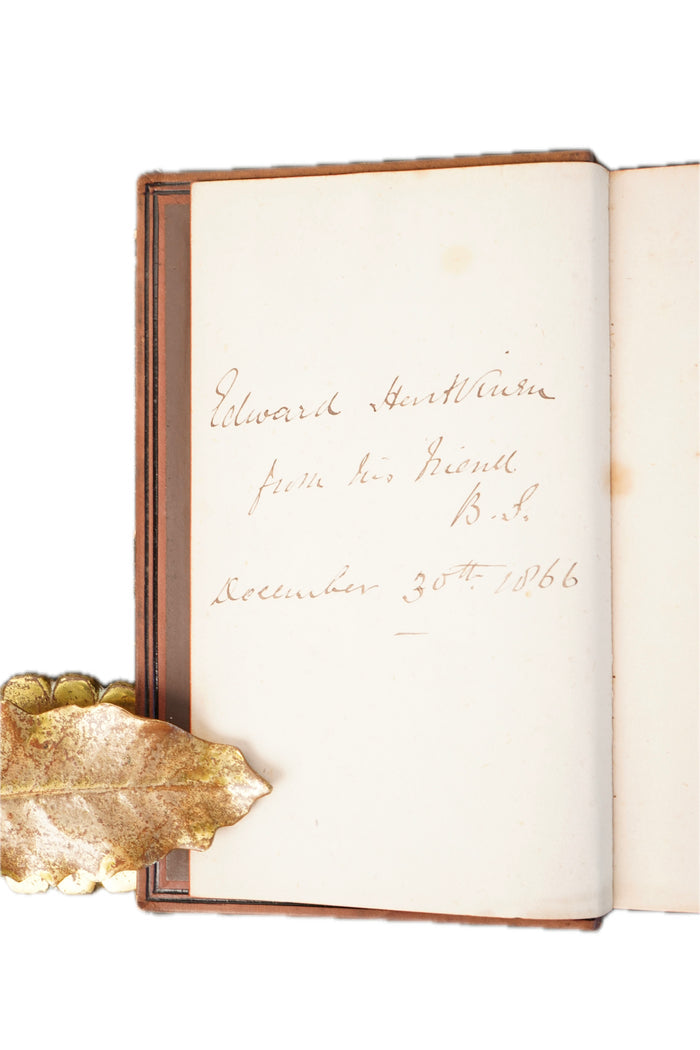 Edward Hart Vinen
from his friend
B. J.
December 30th. 1866